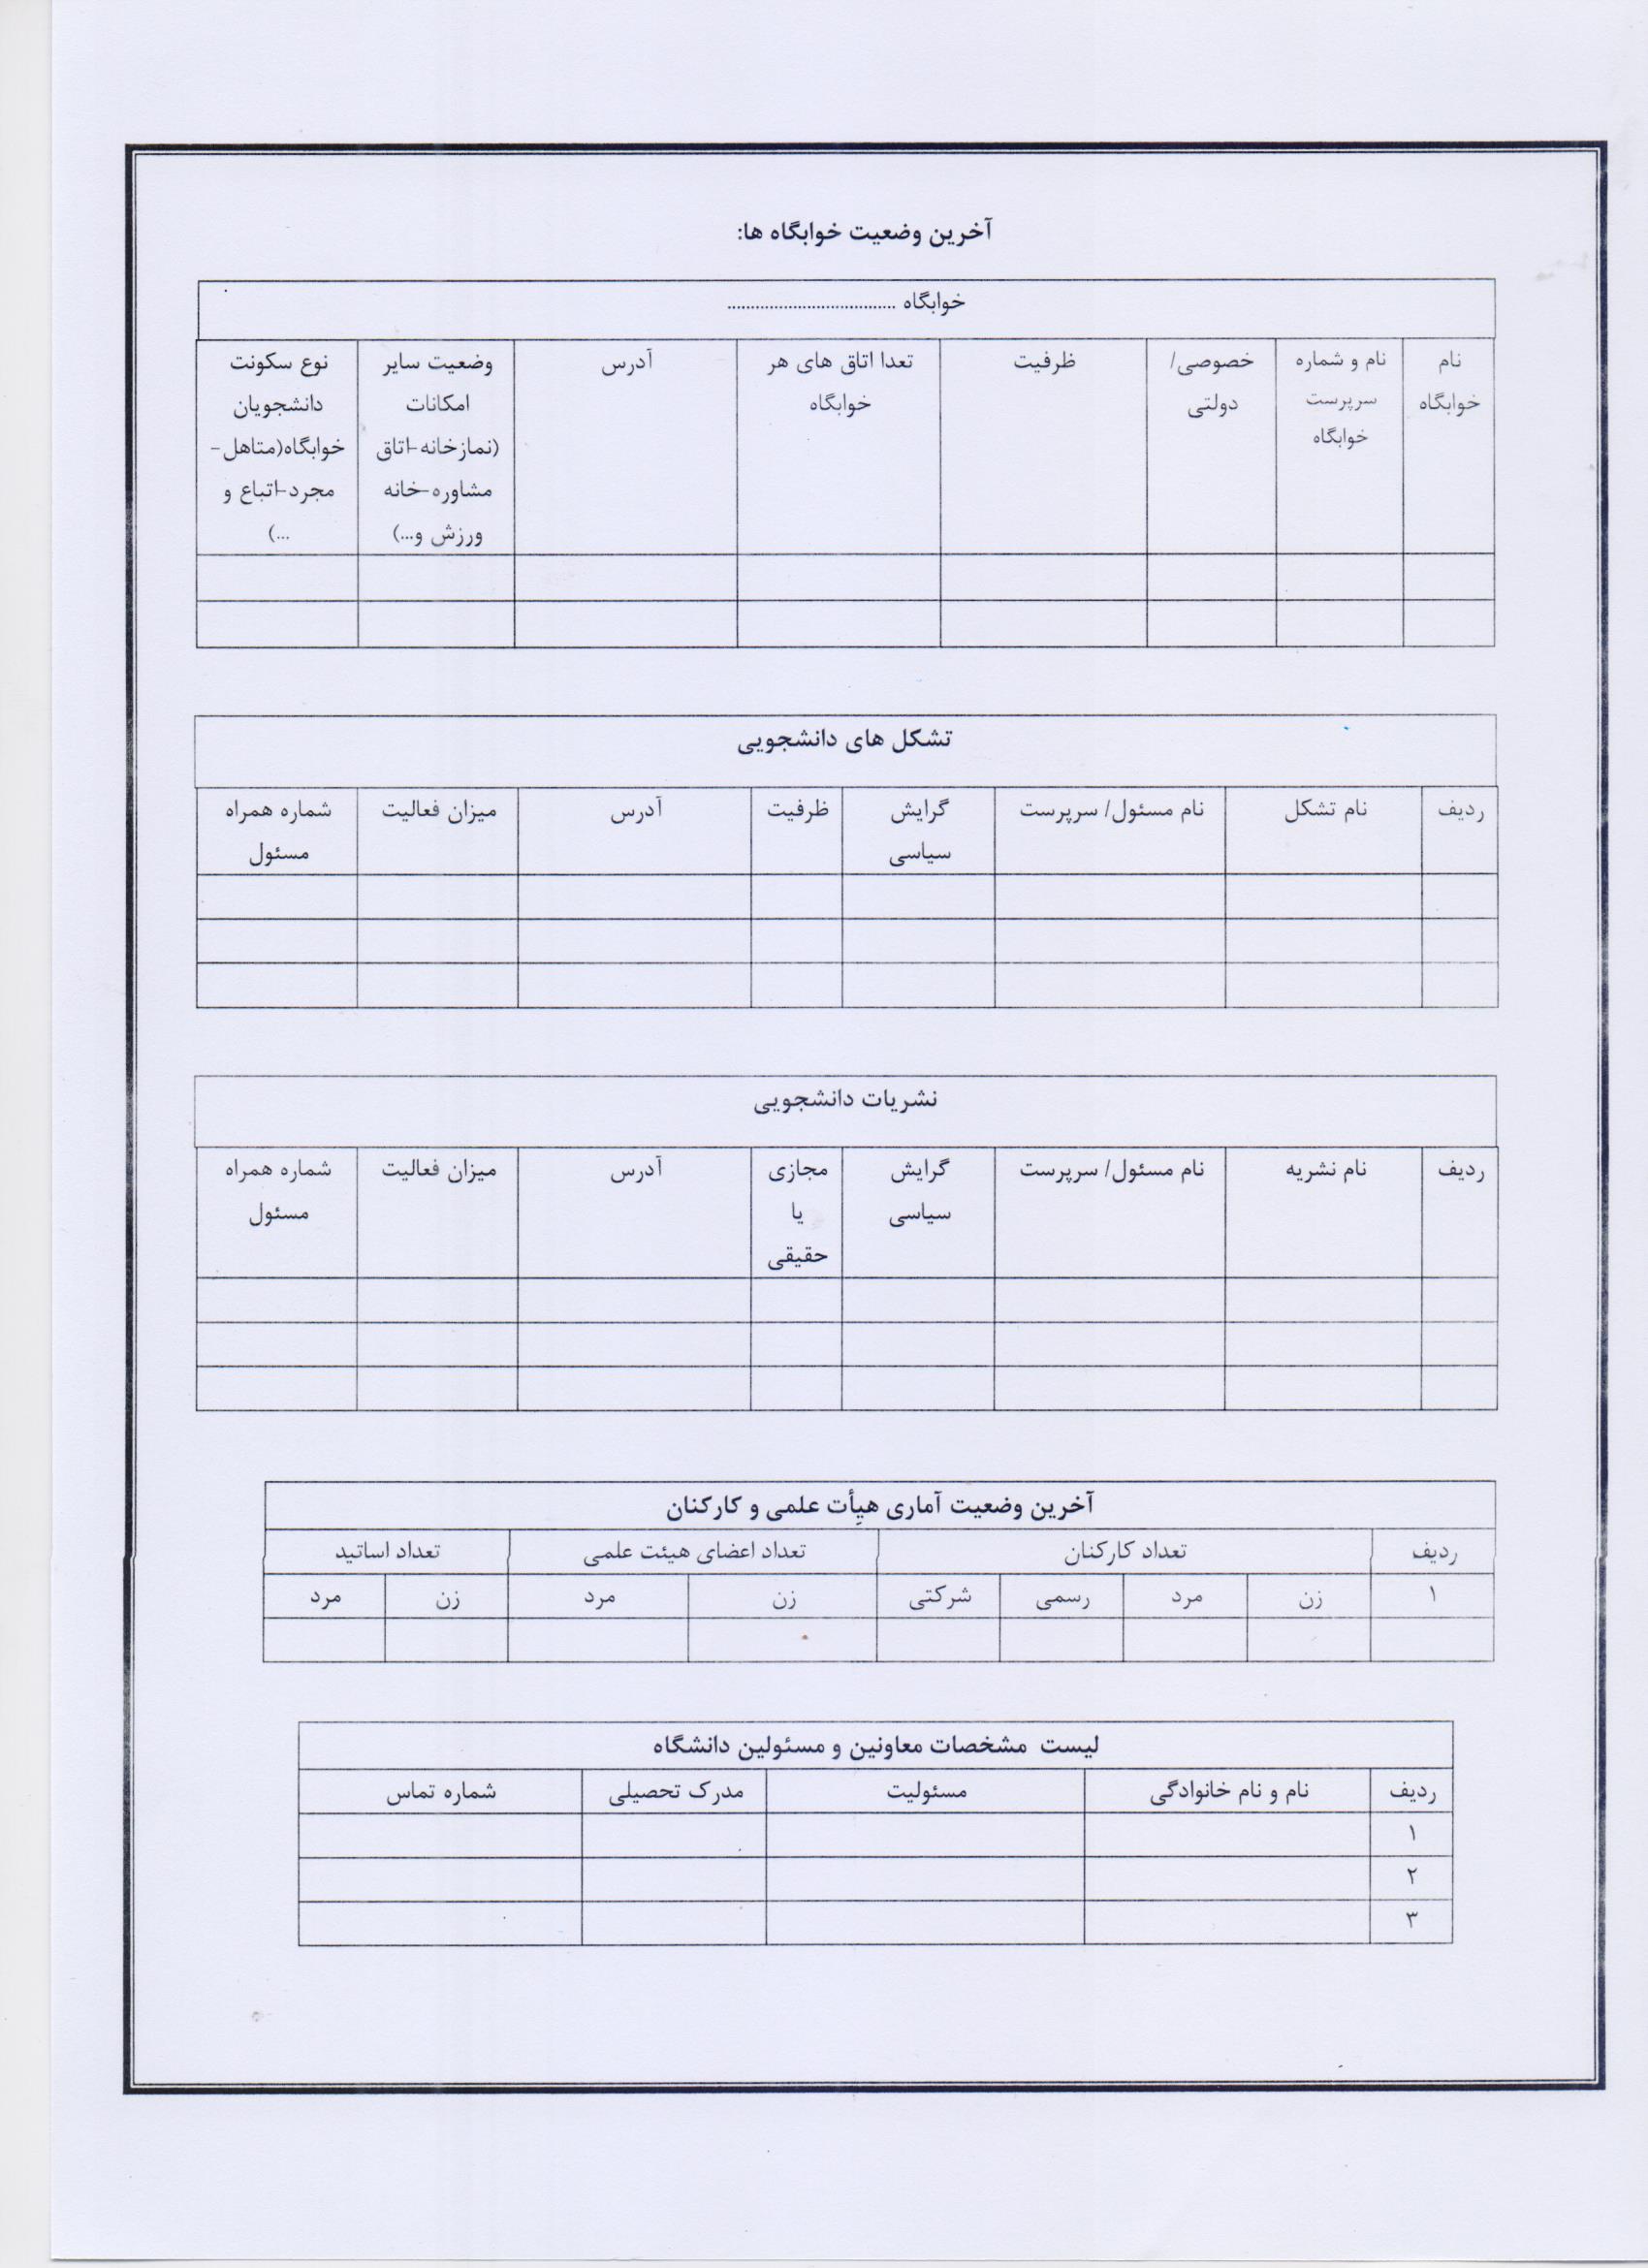 آخرین وضعیت خوابگاه ها:
خوابگاه ....................................
نام خوابگاه
نام و شماره سرپرست خوابگاه
خصوصی/ دولتی
ظرفیت
تعدا اتاق های هر خوابگاه
آدرس
وضعیت سایر امکانات (نمازخانه-اتاق مشاوره-خانه ورزش و...)
نوع سکونت دانشجویان خوابگاه(متاهل- مجرد-اتباع و ...)
تشکل های دانشجویی
ردیف
نام تشکل
نام مسئول/ سرپرست
گرایش سیاسی
ظرفیت
آدرس
میزان فعالیت
شماره همراه مسئول
نشریات دانشجویی
ردیف
نام نشریه
نام مسئول/ سرپرست
گرایش سیاسی
مجازی یا حقیقی
آدرس
میزان فعالیت
شماره همراه مسئول
آخرین وضعیت آماری هیأت علمی و کارکنان
ردیف تعداد کارکنان تعداد اعضای هیئت علمی تعداد اساتید
۱ زن مرد رسمی شرکتی زن مرد زن مرد
لیست مشخصات معاونین و مسئولین دانشگاه
ردیف نام و نام خانوادگی مسئولیت مدرک تحصیلی شماره تماس
۱
۲
۳